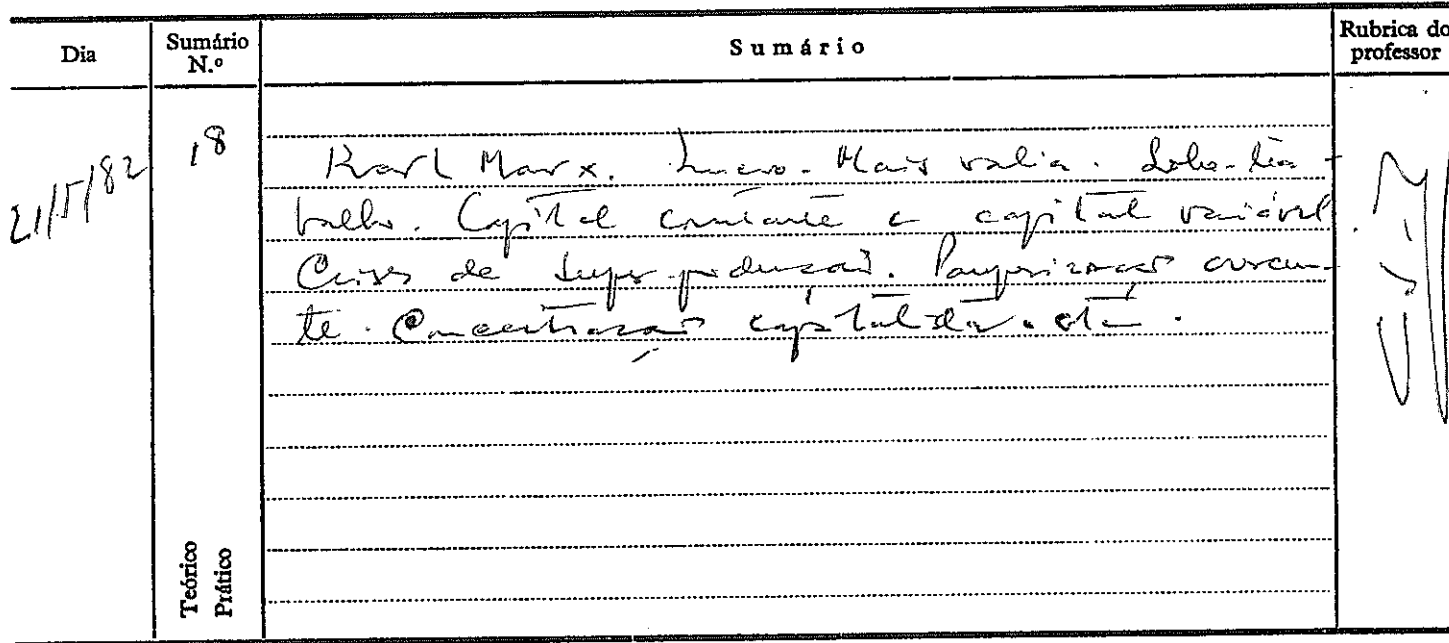 Dia
Sumário N.º
Sumário
Rubrica do professor
21/5/82
18
Karl Marx. Lucro. Mais valia. Sobre-tra-
balho. Capital constante e capital variável
Crises de super-produção. Pauperização crescen-
te. Concentração capitalista. etc.
Teórico
Prático